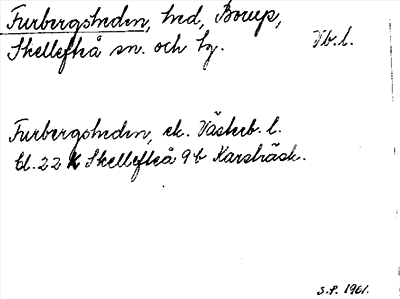 Furbergsheden, hed, Borup,
Skellefteå sn. och tg. Vb. l.
Furbergsheden, ek. Västerb. l.
bl. 22 K Skellefteå 9b Karsbäck.
S.P. 1961.